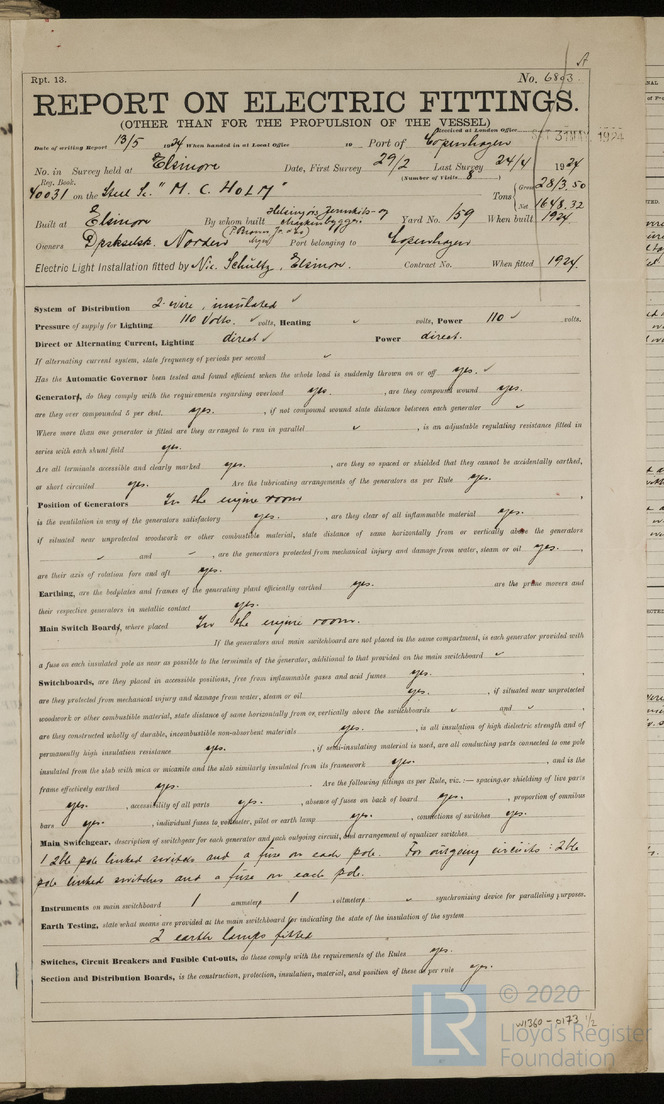 A
Rpt. 13.
No. 6893
REPORT ON ELECTRIC FITTINGS.
(OTHER THAN FOR THE PROPULSION OF THE VESSEL)
Received at London Office
31 MAY 1924
Date of writing Report 13/5 1924 When handed in at Local Office 10 Port of Copenhagen
No. in Survey held at Elsinore Date, First Survey 29/2 Last Survey 24/4 1924
Reg. Book. (Number of Visits 8
40031 on the Steel Sc. "M. C. HOLM" Tons { Gross 2813.50
Net 1648.32
Built at Elsinore By whom built Helsingörs Jernskibs- og Maskinbyggeri Yard No. 159 When built 1924.
Owners Dpskselsk. Norden Port belonging to Copenhagen
Electric Light Installation fitted by Nic. Schultz, Elsinore. Contract No. When fitted 1924.
System of Distribution 2-wire, insulated ✓
Pressure of supply for Lighting 110 Volts. volts, Heating ✓ volts, Power 110 ✓ volts.
Direct or Alternating Current, Lighting direct ✓ Power direct.
If alternating current system, state frequency of periods per second ✓
Has the Automatic Governor been tested and found efficient when the whole load is suddenly thrown on or off yes. ✓
Generators, do they comply with the requirements regarding overload yes. , are they compound wound yes.
are they over compounded 5 per cent. yes. , if not compound wound state distance between each generator ✓
Where more than one generator is fitted are they arranged to run in parallel ✓ , is an adjustable regulating resistance fitted in
series with each shunt field yes.
Are all terminals accessible and clearly marked yes. , are they so spaced or shielded that they cannot be accidentally earthed,
or short circuited yes. Are the lubricating arrangements of the generators as per Rule yes.
Position of Generators In the engine room
is the ventilation in way of the generators satisfactory yes. , are they clear of all inflammable material yes.
if situated near unprotected woodwork or other combustible material, state distance of same horizontally from or vertically above the generators
✓ and ✓ , are the generators protected from mechanical injury and damage from water, steam or oil yes.
are their axis of rotation fore and aft yes.
Earthing, are the bedplates and frames of the generating plant efficiently earthed yes. are the prime movers and
their respective generators in metallic contact yes.
Main Switch Boards, where placed In the engine room.
If the generators and main switchboard are not placed in the same compartment, is each generator provided with
a fuse on each insulated pole as near as possible to the terminals of the generator, additional to that provided on the main switchboard ✓
Switchboards, are they placed in accessible positions, free from inflammable gases and acid fumes yes.
are they protected from mechanical injury and damage from water, steam or oil yes. , if situated near unprotected
woodwork or other combustible material, state distance of same horizontally from or vertically above the switchboards ✓ and ✓
are they constructed wholly of durable, incombustible non-absorbent materials yes. , is all insulation of high dielectric strength and of
permanently high insulation resistance yes. , if semi-insulating material is used, are all conducting parts connected to one pole
insulated from the slab with mica or micanite and the slab similarly insulated from its framework yes. , and is the
frame effectively earthed yes. Are the following fittings as per Rule, viz.:— spacing or shielding of live parts
yes. , accessibility of all parts yes. , absence of fuses on back of board yes. , proportion of omnibus
bars yes. , individual fuses to voltmeter, pilot or earth lamp yes. , connections of switches yes.
Main Switchgear, description of switchgear for each generator and each outgoing circuit, and arrangement of equalizer switches
1 2ble pole linked switch and a fuse on each pole. For outgoing circuits: 2ble
pole linked switches and a fuse on each pole.
Instruments on main switchboard 1 ammeters 1 voltmeters ✓ synchronising device for paralleling purposes.
Earth Testing, state what means are provided at the main switchboard for indicating the state of the insulation of the system
2 earth lamps fitted
Switches, Circuit Breakers and Fusible Cut-outs, do these comply with the requirements of the Rules yes.
Section and Distribution Boards, is the construction, protection, insulation, material, and position of these as per rule yes.
LR
© 2020
Lloyd's Register
Foundation
W1360-0173 1/2